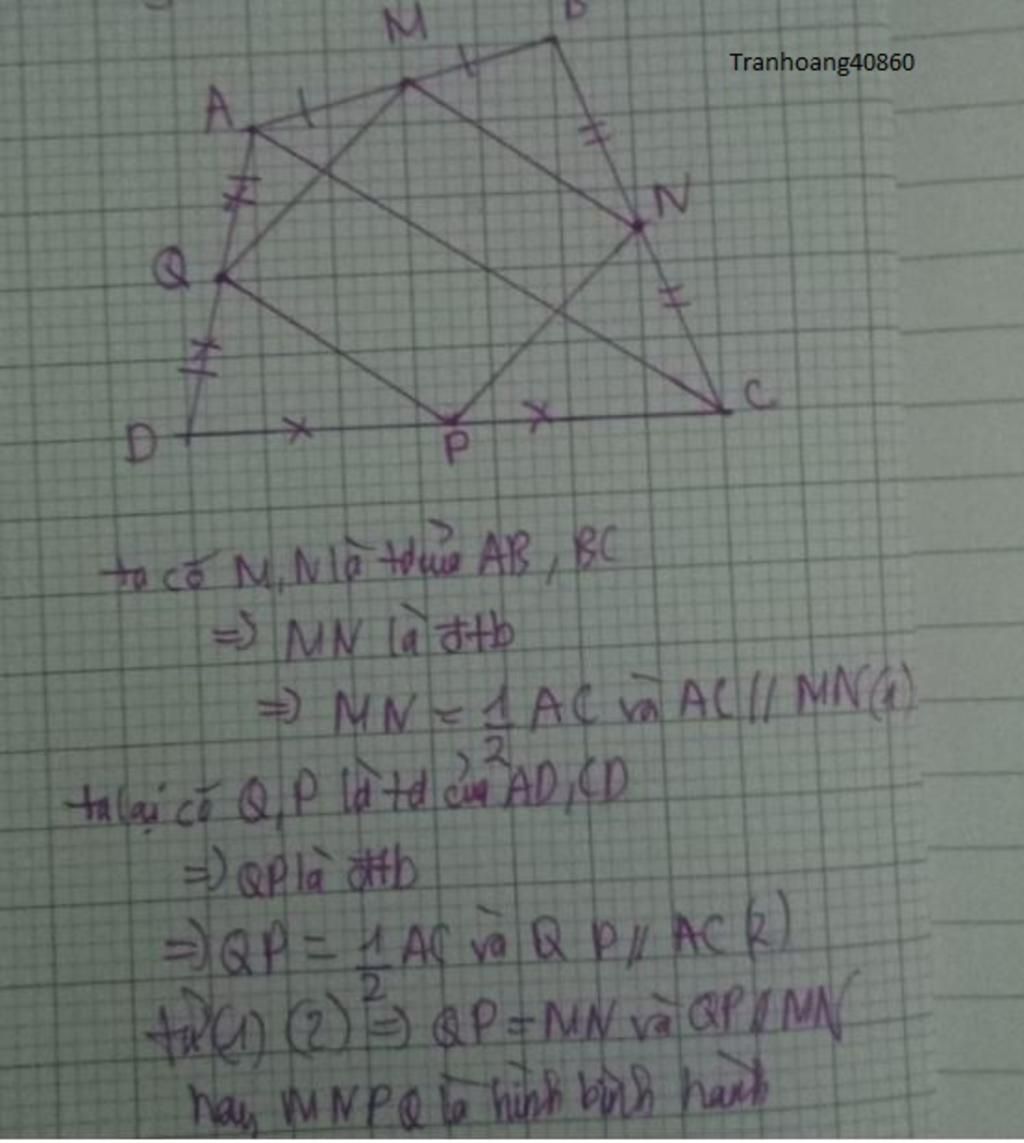 M
Tranhoang40860
A
N
Q
C
D
P
ta có M, N là td của AB, BC
=> MN là đtb
=> MN = 1/2 AC và AC // MN (1)
ta lại có Q, P là td của AD, CD
=> QP là đtb
=> QP = 1/2 AC và QP // AC (2)
từ (1) (2) => QP = MN và QP // MN
hay MNPQ là hình bình hành